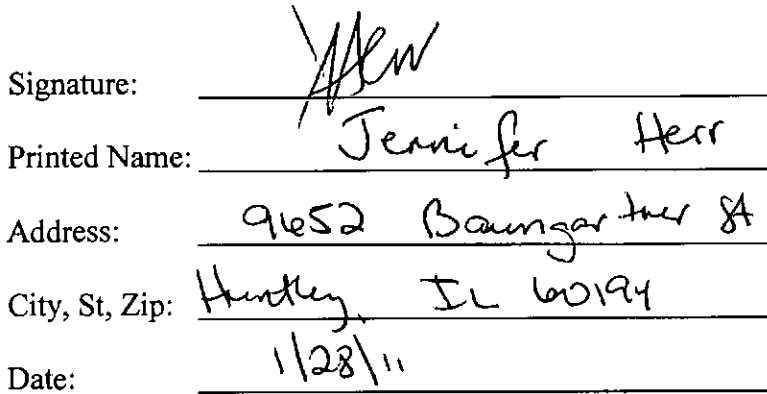 Signature:
Printed Name: Jennifer Herr
Address: 9652 Baumgartner St
City, St, Zip: Huntley, IL 60194
Date: 1/28/11